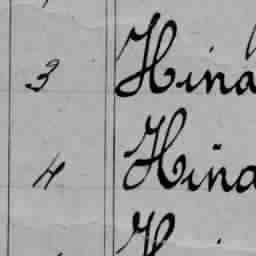 3 Hina
4 Hina